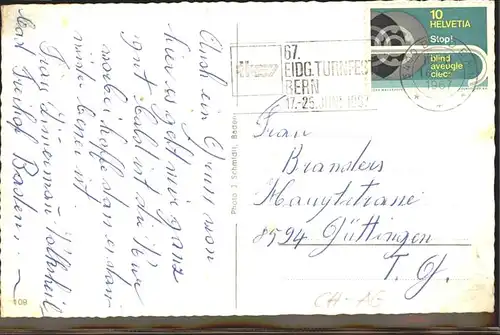 Auch ein Gruss von
hier es geht mir ganz
gut bald ist die Kur
vorbei hoffe dann
Frau Zimerman Volksheil
Bad Freihof Baden.
109
Photo J. Schmidli, Baden
67.
EIDG. TURNFEST
BERN
17.-25. JUNI 1967
10
HELVETIA
Stop!
blind
aveugle
cieco
1967
Frau
Branders
Hauptstrasse
8594 Güttingen
T. G.
CH-AG